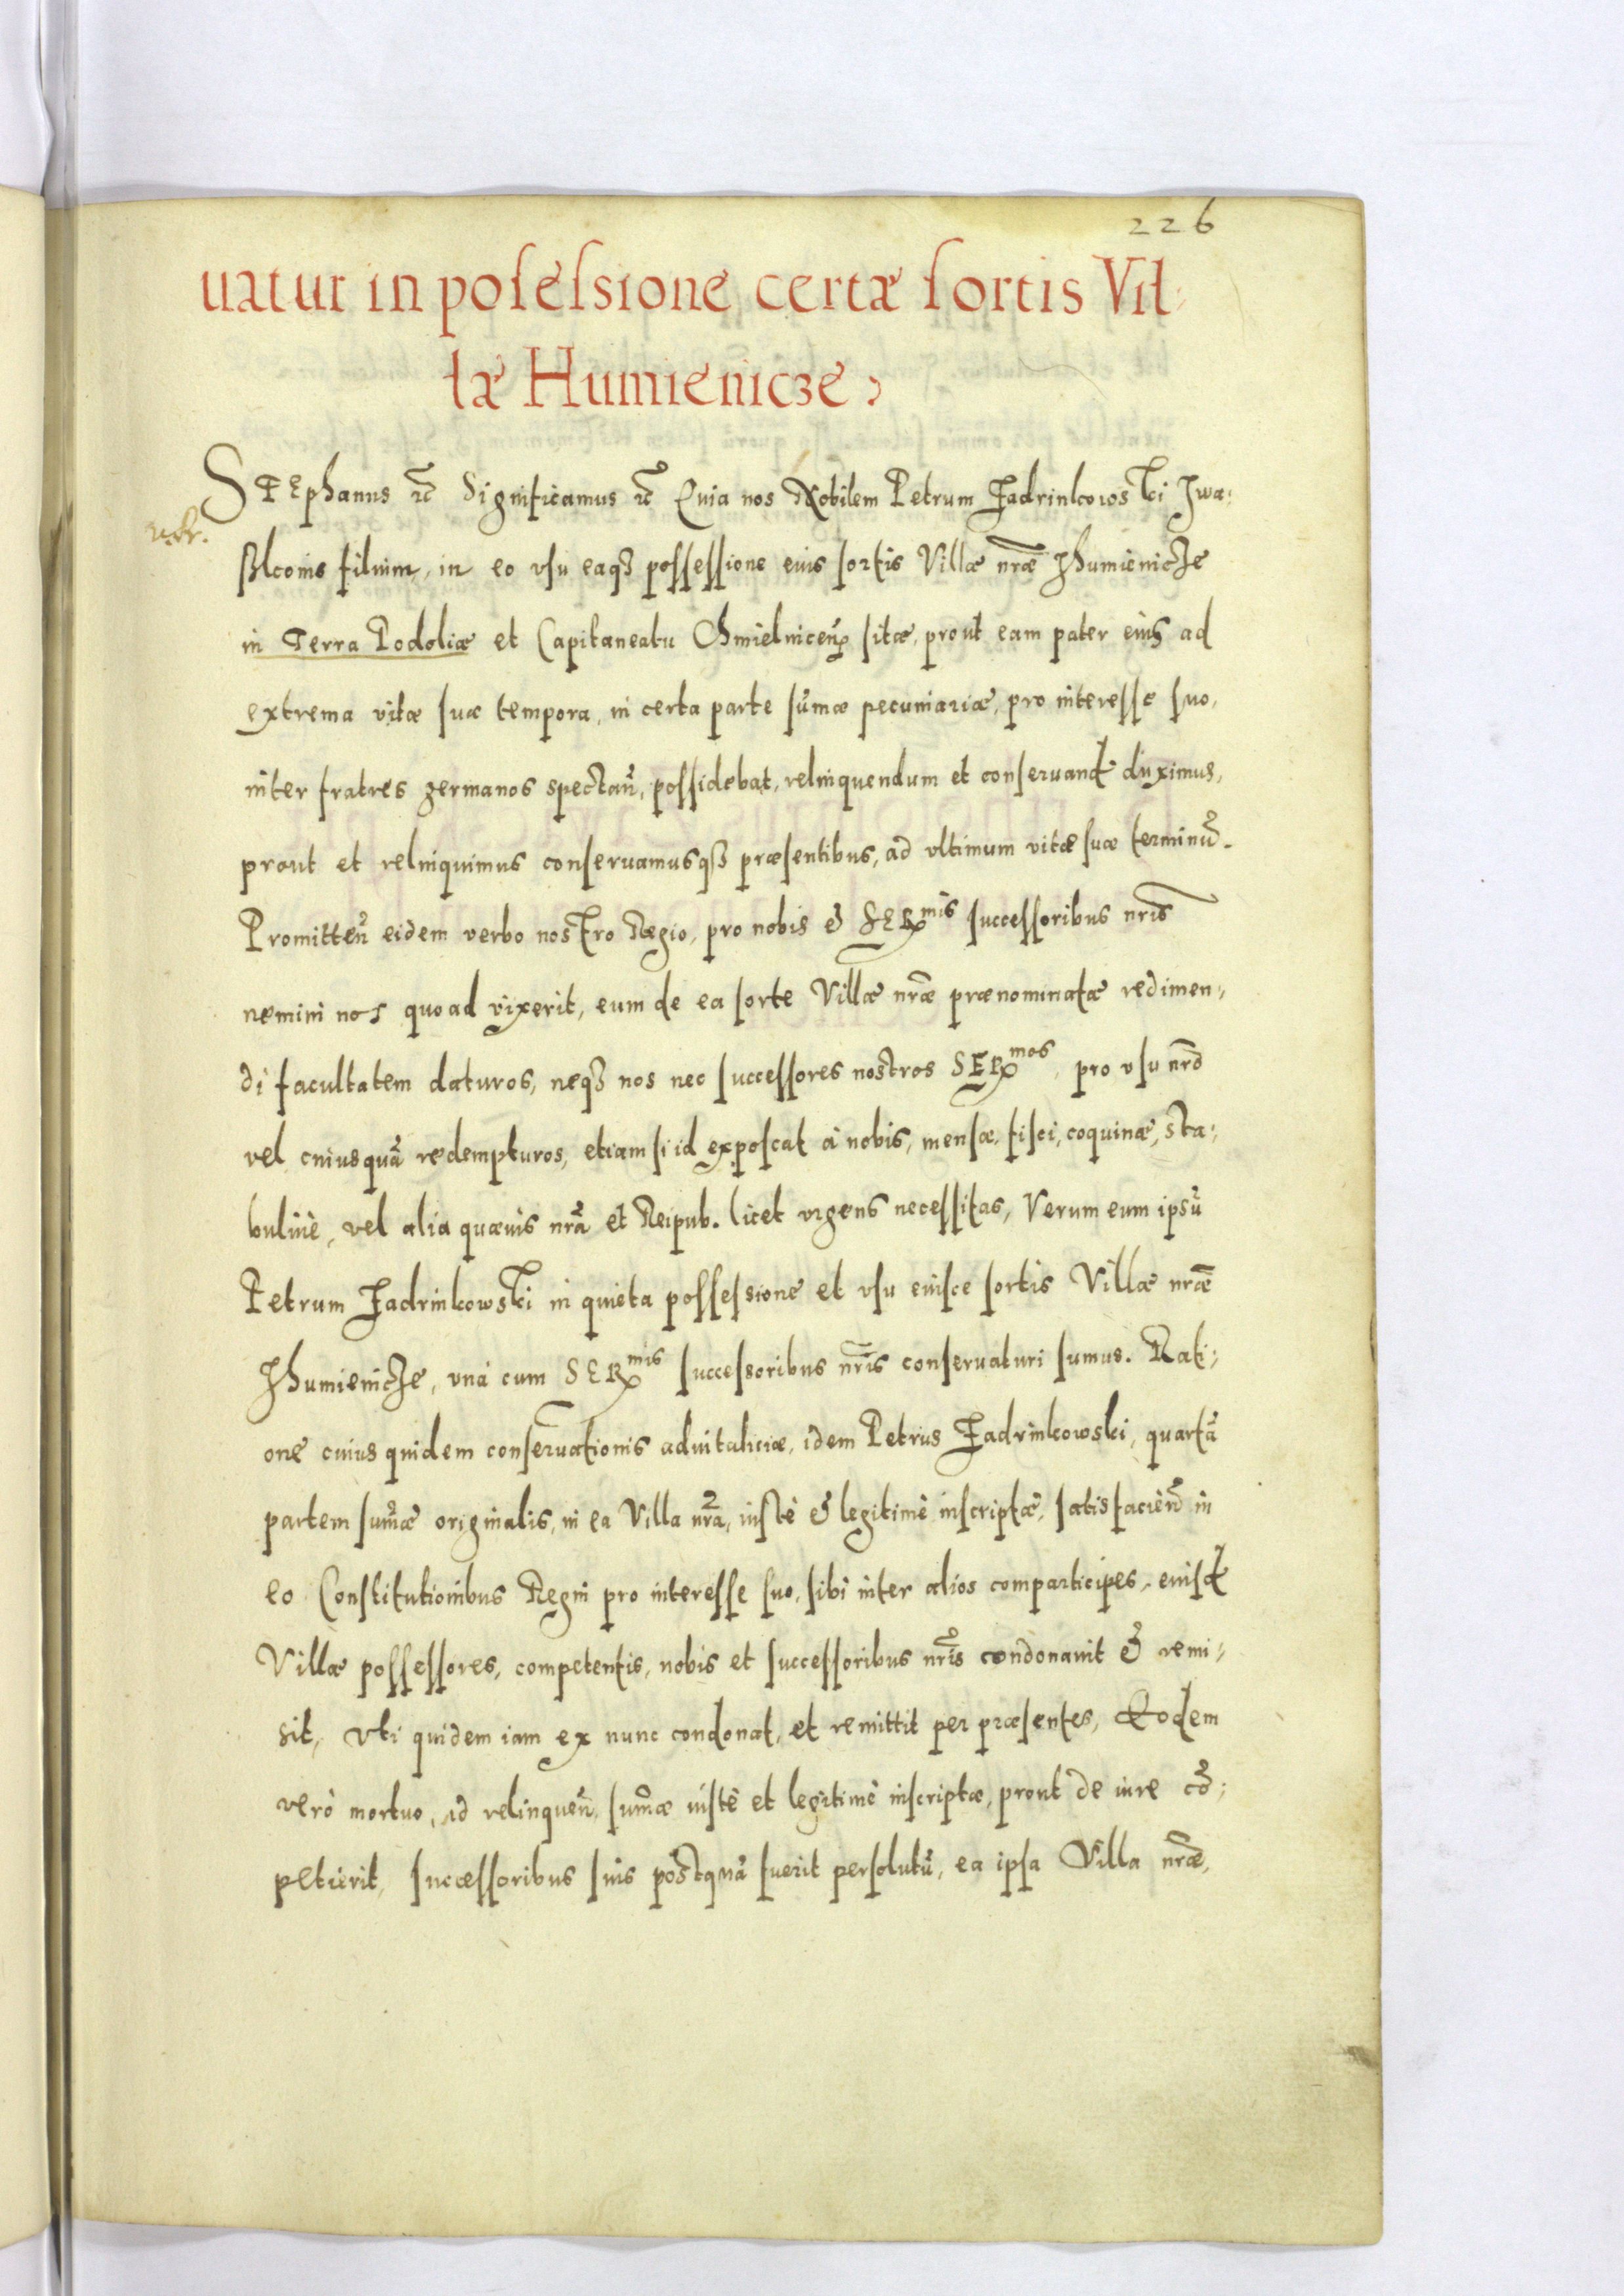 226
uatur in possessione certæ sortis Vil-
læ Humienicze
STEphanus etc Significamus etc Quia nos Nobilem Petrum Jadrinkowski Iwa-
ßkonis filium, in eo vsu eaq3 possessione eius sortis Villæ nr̃æ Humienicze
in Terra Podoliæ et Capitaneatu Chmielniceñ sitæ, prout eam pater eius ad
extrema vitæ suæ tempora, in certa parte sum̃æ pecuniariæ, pro interesse suo,
inter fratres germanos spectañ, possidebat, relinquendum et conseruand duximus,
prout et relinquimus conseruamusq3 præsentibus, ad vltimum vitæ suæ terminũ.
Promitteñ eidem verbo nostro Regio, pro nobis & SERmis successoribus nr̃is
nemini nos quoad vixerit, eum de ea sorte Villæ nr̃æ prænominatæ redimen-
di facultatem daturos, neq3 nos nec successores nostros SERmos, pro vsu nr̃o
vel cuiusquã redempturos, etiam si id exposcat à nobis, mensæ, fisci, coquinæ, sta-
bulíue, vel alia quæuis nr̃a et Reipub. licet vrgens necessitas, Verum eum ipsũ
Petrum Jadrinkowski in quieta possessione et vsu eiusce sortis Villæ nr̃æ
Humienicze, vnà cum SERmis successoribus nr̃is conseruaturi sumus. Rati-
one cuius quidem conseruationis aduitaliciæ, idem Petrus Jadrinkowski, quartã
partem sum̃æ originalis, in ea Villa nr̃a, iustè & legitimè inscriptæ, satisfacieñ in
eo Constitutionibus Regni pro interesse suo, sibi inter alios comparticipes, eiusd
Villæ possessores, competentis, nobis et successoribus nr̃is condonauit & remi-
sit, Vti quidem iam ex nunc condonat, et remittit per præsentes, Eodem
verò mortuo, id relinqueñ sum̃æ iustè et legitimè inscriptæ, prout de iure cõ-
petierit, successoribus suis postquã fuerit persolutũ, ea ipsa Villa nr̃æ,